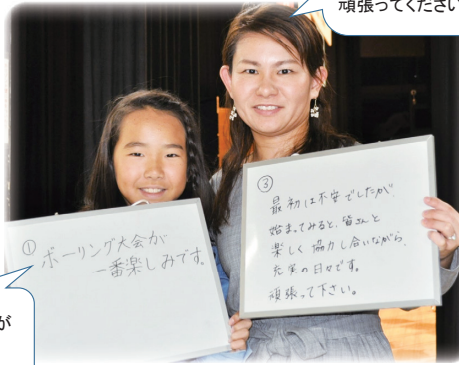 頑張ってください
①
ボーリング大会が
一番楽しみです。
③
最初は不安でしたが
始まってみると、皆さんと
楽しく協力し合いながら、
充実の日々です。
頑張って下さい。
が